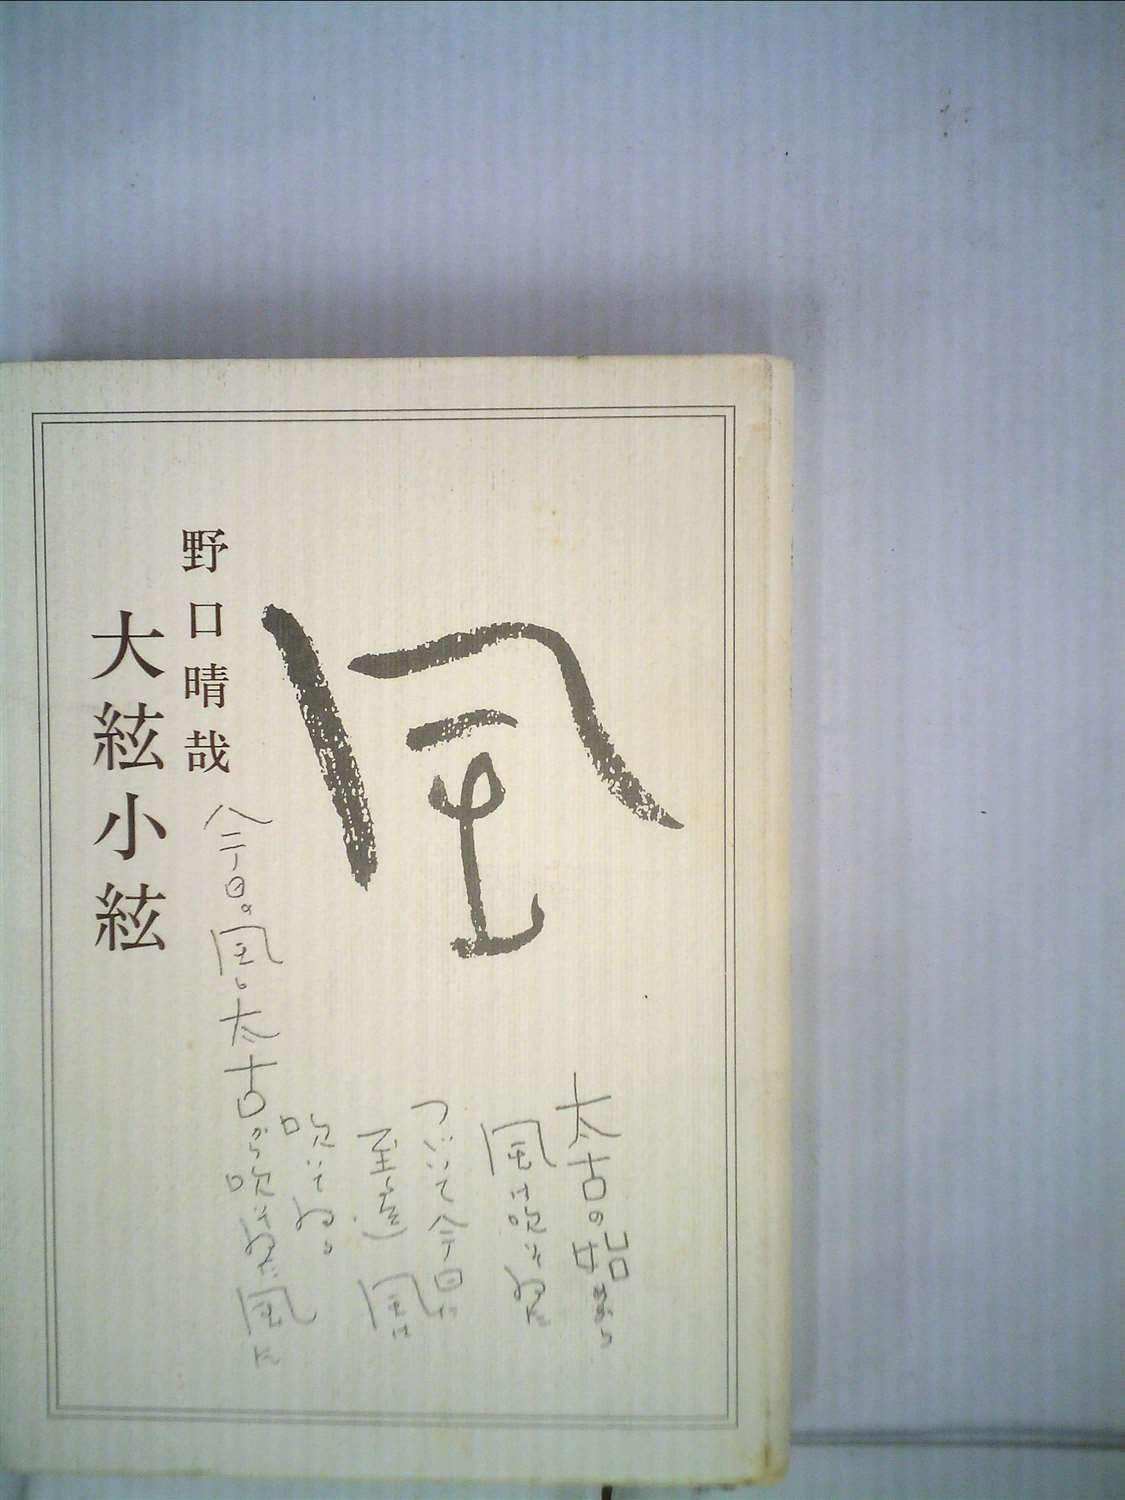 風
太古の始から
風は吹いてゐた
つゞいて今日に
至る迄 風は
吹いてゐる
今日の風も太古から吹いてゐた風だ
野口晴哉
大絃小絃